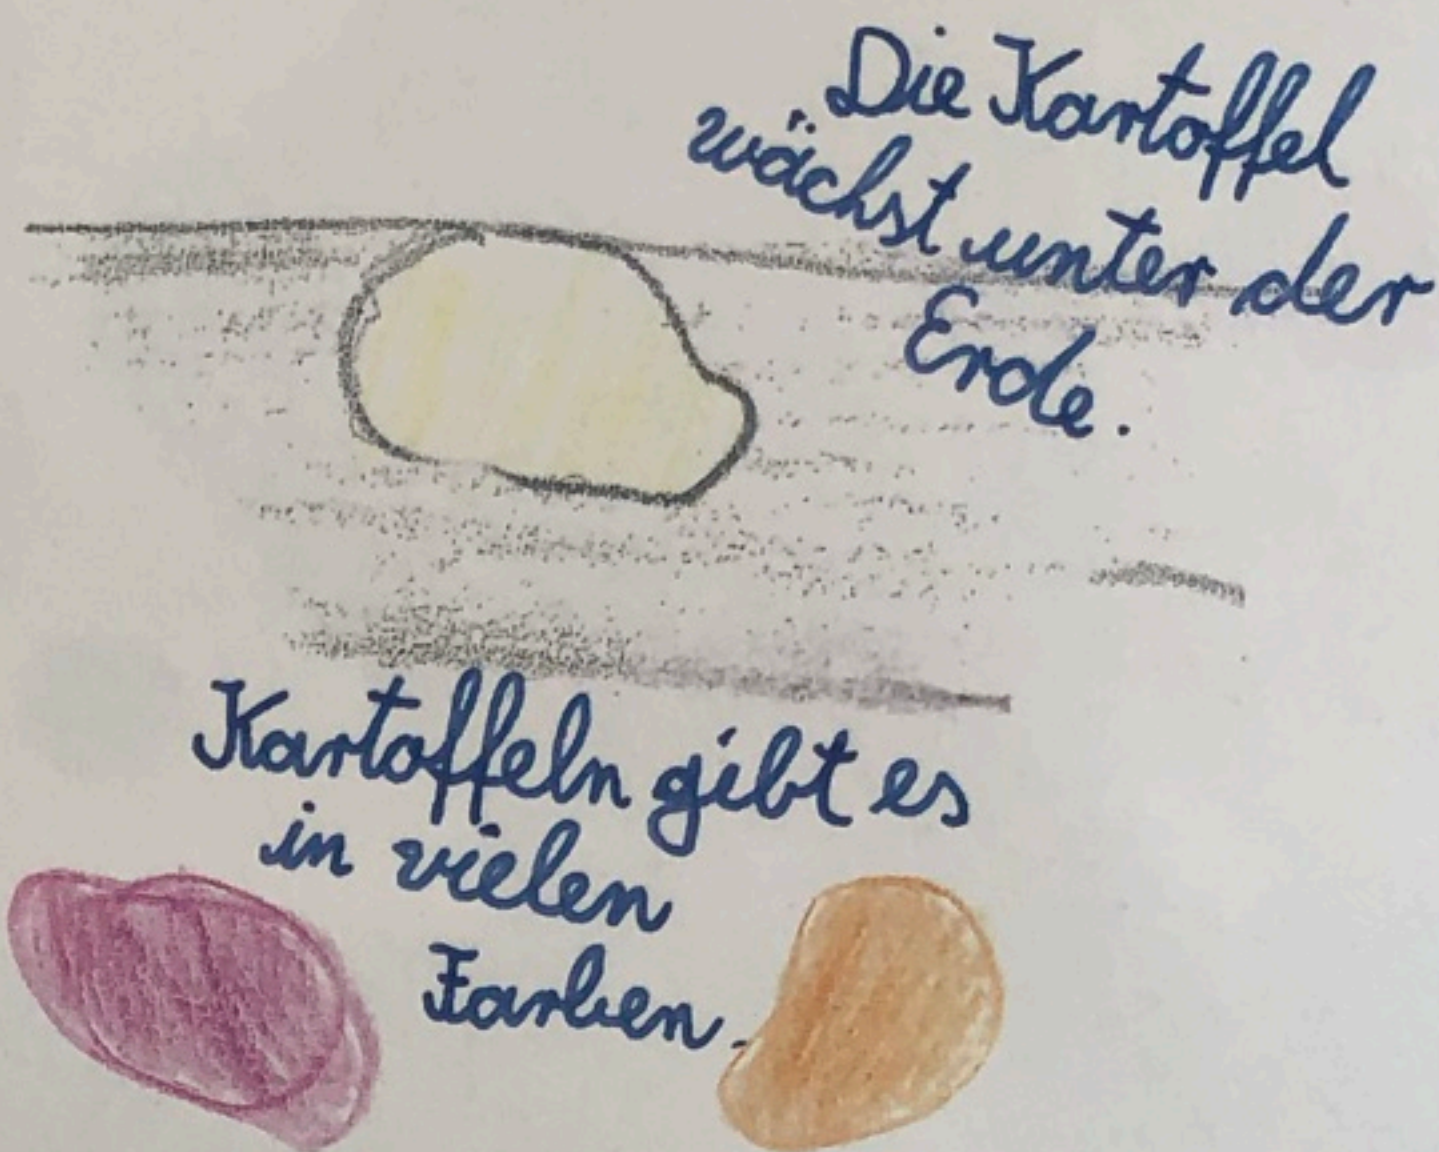 Die Kartoffel
wächst unter der
Erde.
Kartoffeln gibt es
in vielen
Farben.